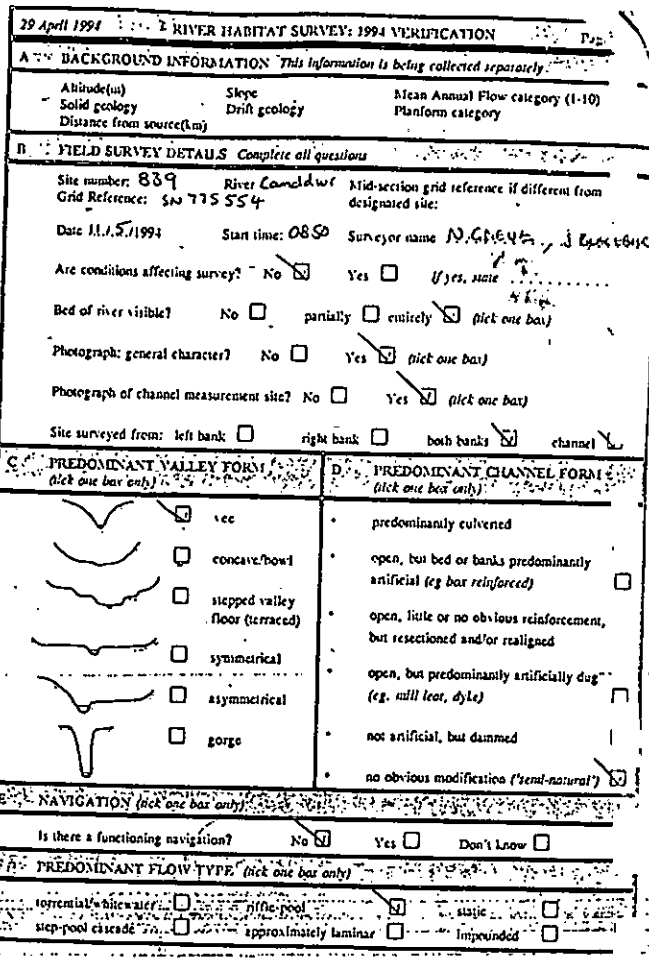 29 April 1994 RIVER HABITAT SURVEY: 1994 VERIFICATION
A BACKGROUND INFORMATION This information is being collected separately.
Altitude(m) Slope Mean Annual Flow category (1-10)
Solid geology Drift geology Planform category
Distance from source(km)
B FIELD SURVEY DETAILS Complete all questions
Site number: 839 River Mid-section grid reference if different from
Grid Reference: SN 775 554 designated site:
Date 11/5/1994 Start time: 0850 Surveyor name
Are conditions affecting survey? No Yes If yes, state
Bed of river visible? No partially entirely (tick one box)
Photograph: general character? No Yes (tick one box)
Photograph of channel measurement site? No Yes (tick one box)
Site surveyed from: left bank right bank both banks channel
C PREDOMINANT VALLEY FORM
(tick one box only)
vee
concave/bowl
stepped valley
floor (terraced)
symmetrical
asymmetrical
gorge
D PREDOMINANT CHANNEL FORM
(tick one box only)
predominantly culverted
open, but bed or banks predominantly
artificial (eg box reinforced)
open, little or no obvious reinforcement,
but resectioned and/or realigned
open, but predominantly artificially dug
(eg. mill leat, dyke)
not artificial, but dammed
no obvious modification ('semi-natural')
E NAVIGATION (tick one box only)
Is there a functioning navigation? No Yes Don't know
PREDOMINANT FLOW TYPE (tick one box only)
torrential/whitewater riffle-pool static
step-pool cascade approximately laminar Impounded